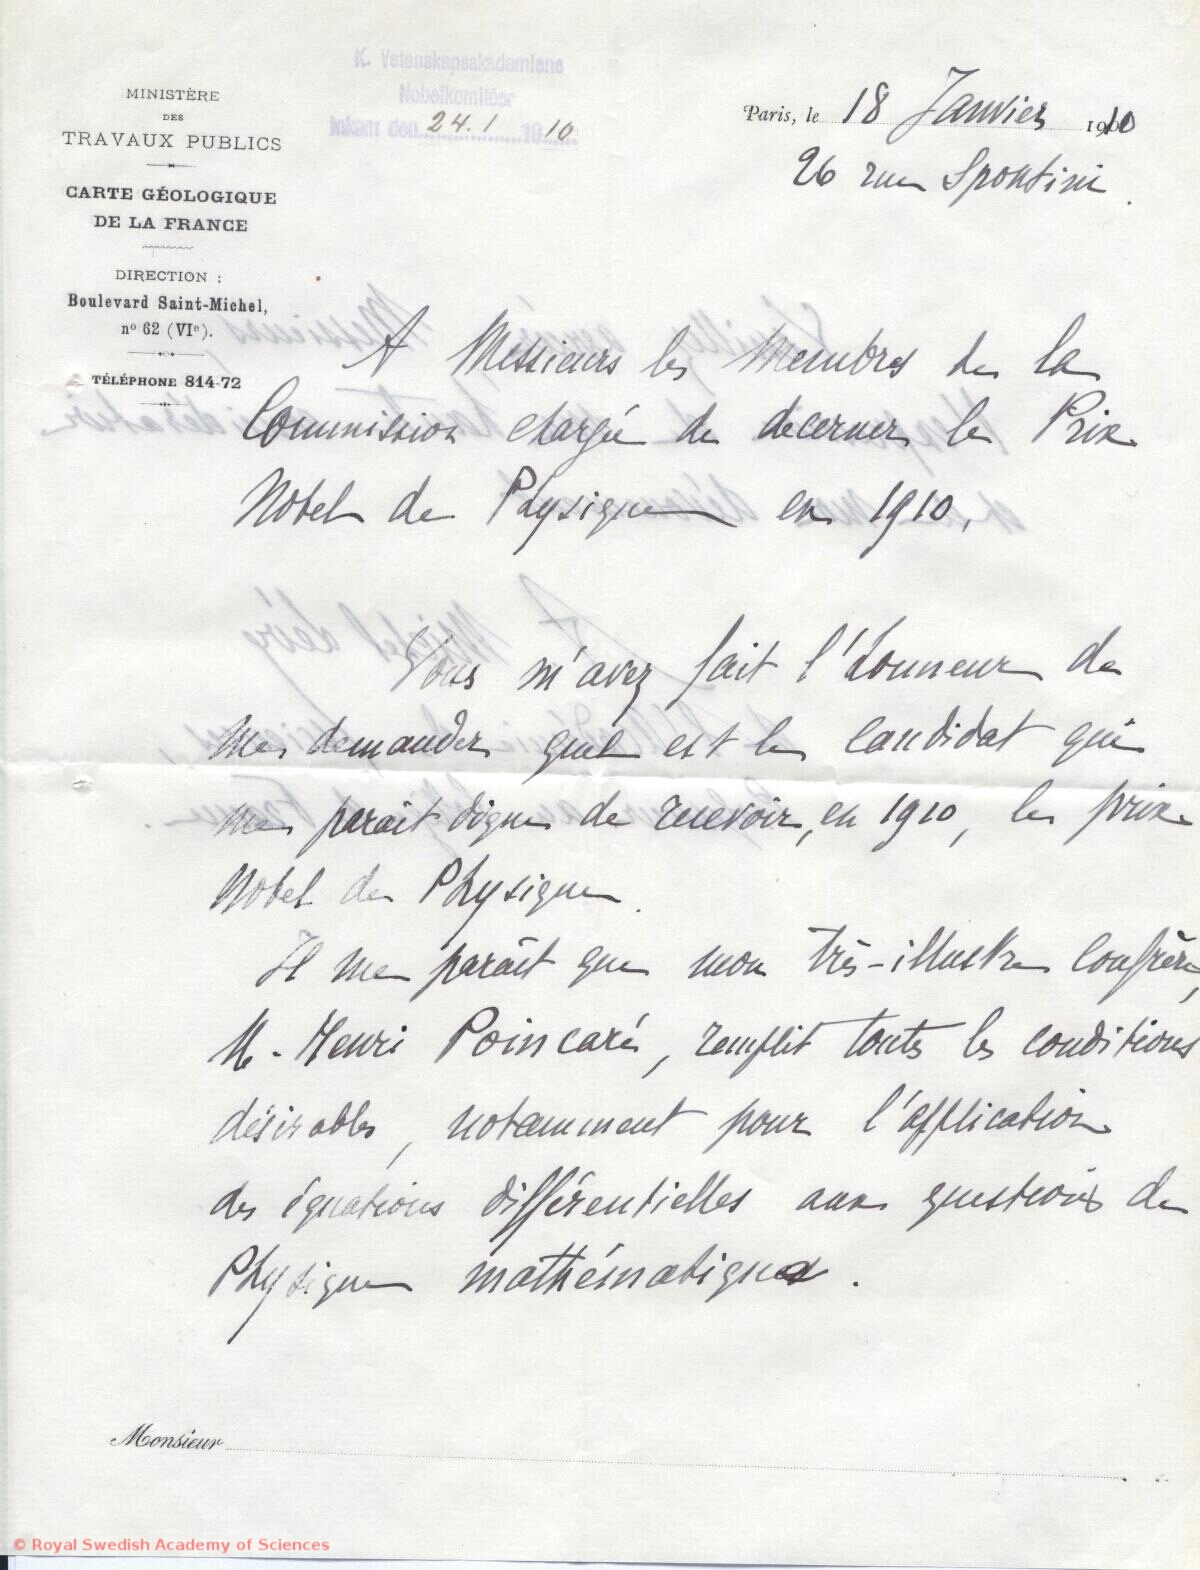 K. Vetenskapsakademiens
Nobelkomitéer
Inkom den 24.1 1910
MINISTÈRE
DES
TRAVAUX PUBLICS
CARTE GÉOLOGIQUE
DE LA FRANCE
DIRECTION :
Boulevard Saint-Michel,
nº 62 (VIe).
TÉLÉPHONE 814-72
Paris, le 18 Janvier 1910
26 rue Spontini.
A Messieurs les Membres de la
Commission chargée de décerner le Prix
Nobel de Physique en 1910.
Vous m'avez fait l'honneur de
me demander quel est le candidat qui
me paraît digne de recevoir, en 1910, le prix
Nobel de Physique.
Il me paraît que mon très-illustre confrère,
M. Henri Poincaré, remplit toutes les conditions
désirables, notamment pour l'application
des équations différentielles aux questions de
Physique mathématique.
Monsieur
© Royal Swedish Academy of Sciences